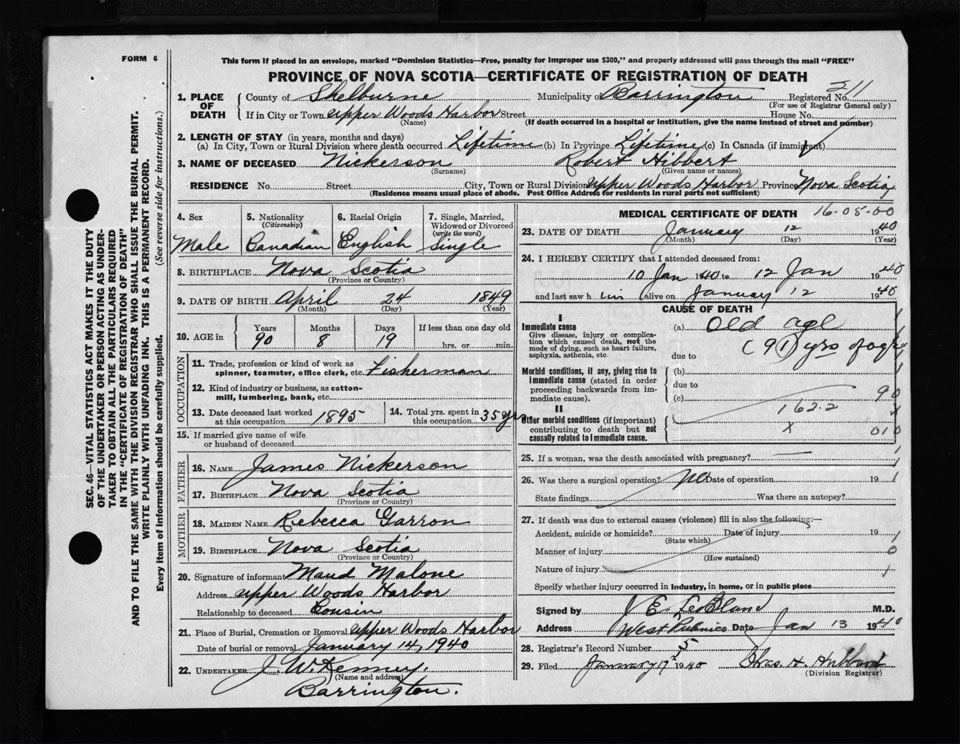 FORM 6
This form if placed in an envelope, marked "Dominion Statistics—Free, penalty for improper use $300," and properly addressed will pass through the mail "FREE"
PROVINCE OF NOVA SCOTIA—CERTIFICATE OF REGISTRATION OF DEATH
1. PLACE OF DEATH County of Shelburne Municipality of Barrington Registered No. 311
(For use of Registrar General only)
If in City or Town Upper Woods Harbor Street House No.
(Name) (If death occurred in a hospital or institution, give the name instead of street and number)
2. LENGTH OF STAY (in years, months and days)
(a) In City, Town or Rural Division where death occurred Lifetime (b) In Province Lifetime (c) In Canada (if immigrant)
3. NAME OF DECEASED Nickerson Robert Hibbert
(Surname) (Given name or names)
RESIDENCE No. Street City, Town or Rural Division Upper Woods Harbor Province Nova Scotia
(Residence means usual place of abode. Post Office Address for residents in rural parts not sufficient)
SEC. 46—VITAL STATISTICS ACT MAKES IT THE DUTY
OF THE UNDERTAKER OR PERSON ACTING AS UNDER-
TAKER TO OBTAIN ALL THE PARTICULARS REQUIRED
IN THE "CERTIFICATE OF REGISTRATION OF DEATH"
AND TO FILE THE SAME WITH THE DIVISION REGISTRAR WHO SHALL ISSUE THE BURIAL PERMIT.
WRITE PLAINLY WITH UNFADING INK. THIS IS A PERMANENT RECORD.
Every item of information should be carefully supplied. (See reverse side for instructions.)
4. Sex Male
5. Nationality (Citizenship) Canadian
6. Racial Origin English
7. Single, Married, Widowed or Divorced (write the word) Single
8. BIRTHPLACE Nova Scotia
(Province or Country)
9. DATE OF BIRTH April 24 1849
(Month) (Day) (Year)
10. AGE in Years 90 Months 8 Days 19 If less than one day old hrs. or min.
OCCUPATION
11. Trade, profession or kind of work as spinner, teamster, office clerk, etc. Fisherman
12. Kind of industry or business, as cotton-mill, lumbering, bank, etc.
13. Date deceased last worked at this occupation 1895
14. Total yrs. spent in this occupation 35 yrs
15. If married give name of wife or husband of deceased
FATHER
16. NAME James Nickerson
17. BIRTHPLACE Nova Scotia
MOTHER
18. MAIDEN NAME Rebecca Garron
19. BIRTHPLACE Nova Scotia
(Province or Country)
20. Signature of informant Maud Malone
Address Upper Woods Harbor
Relationship to deceased Cousin
21. Place of Burial, Cremation or Removal Upper Woods Harbor
Date of burial or removal January 14, 1940
22. UNDERTAKER J. W. Kenney.
(Name and address)
Barrington.
MEDICAL CERTIFICATE OF DEATH 16-05-00
23. DATE OF DEATH January 12 1940
(Month) (Day) (Year)
24. I HEREBY CERTIFY that I attended deceased from:
10 Jan 1940 to 12 Jan 1940
and last saw him alive on January 12 1940
CAUSE OF DEATH
I
Immediate cause (a) Old age
Give disease, injury or complication which caused death, not the mode of dying, such as heart failure, asphyxia, asthenia, etc.
due to (91) yrs of age
Morbid conditions, if any, giving rise to immediate cause (stated in order proceeding backwards from immediate cause).
(b)
due to
(c) 90
162.2
II
Other morbid conditions (if important) contributing to death but not causally related to immediate cause.
X 010
25. If a woman, was the death associated with pregnancy? —
26. Was there a surgical operation? No Date of operation 19
State findings Was there an autopsy?
27. If death was due to external causes (violence) fill in also the following:—
Accident, suicide or homicide? Date of injury 19
(State which)
Manner of injury
(How sustained)
Nature of injury
Specify whether injury occurred in industry, in home, or in public place
Signed by J E LeBlanc M.D.
Address West Pubnico Date Jan 13 1940
28. Registrar's Record Number 5
29. Filed January 17 1940 Chas H. Hubbard
(Division Registrar)